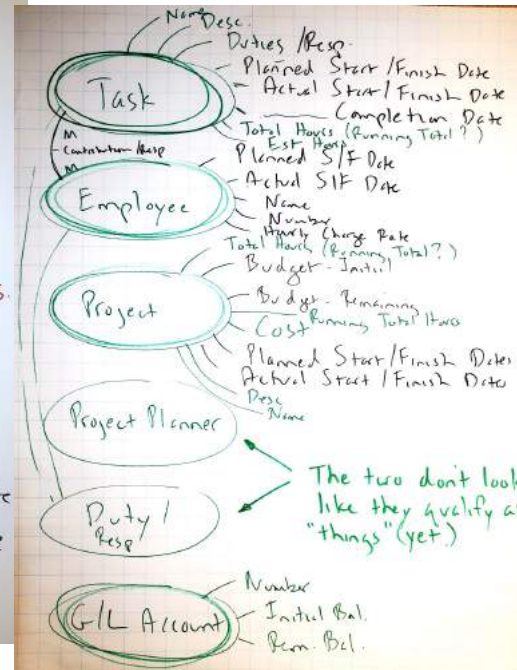 Name
Desc.
Duties / Resp.
Planned Start / Finish Date
Actual Start / Finish Date
Completion Date
Total Hours (Running Total?)
Est Hours
Task
M
Contribution / Resp
M
Planned S/F Date
Actual S/F Date
Name
Number
Hourly Charge Rate
Employee
Total Hours (Running Total?)
Budget - Initial
Budget - Remaining
Running Total Hours
Cost
Planned Start / Finish Dates
Actual Start / Finish Dates
Desc
Name
Project
Project Planner
The two don't look
like they qualify a
"things" (yet)
Duty /
Resp
Number
Initial Bal.
Rem. Bal.
G/L Account